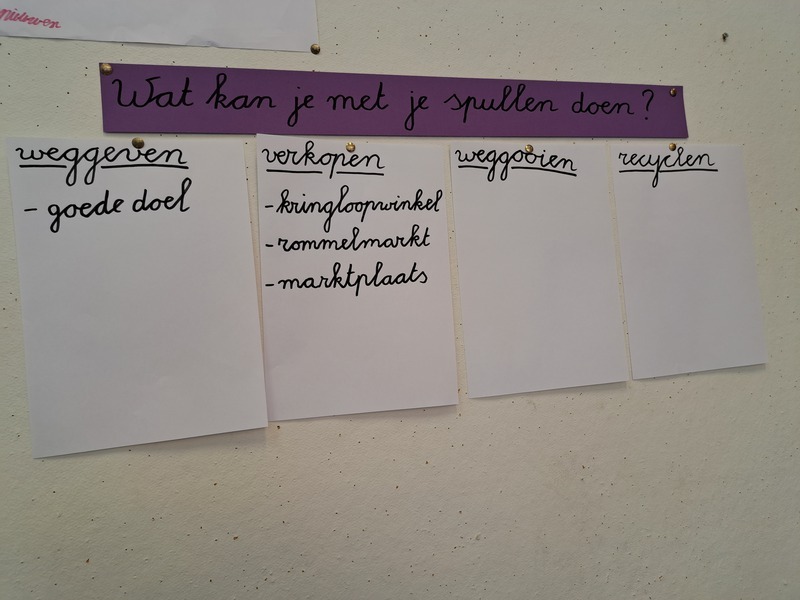 nieuwen
Wat kan je met je spullen doen?
weggeven
- goede doel
verkopen
- kringloopwinkel
- rommelmarkt
- marktplaats
weggooien
recyclen